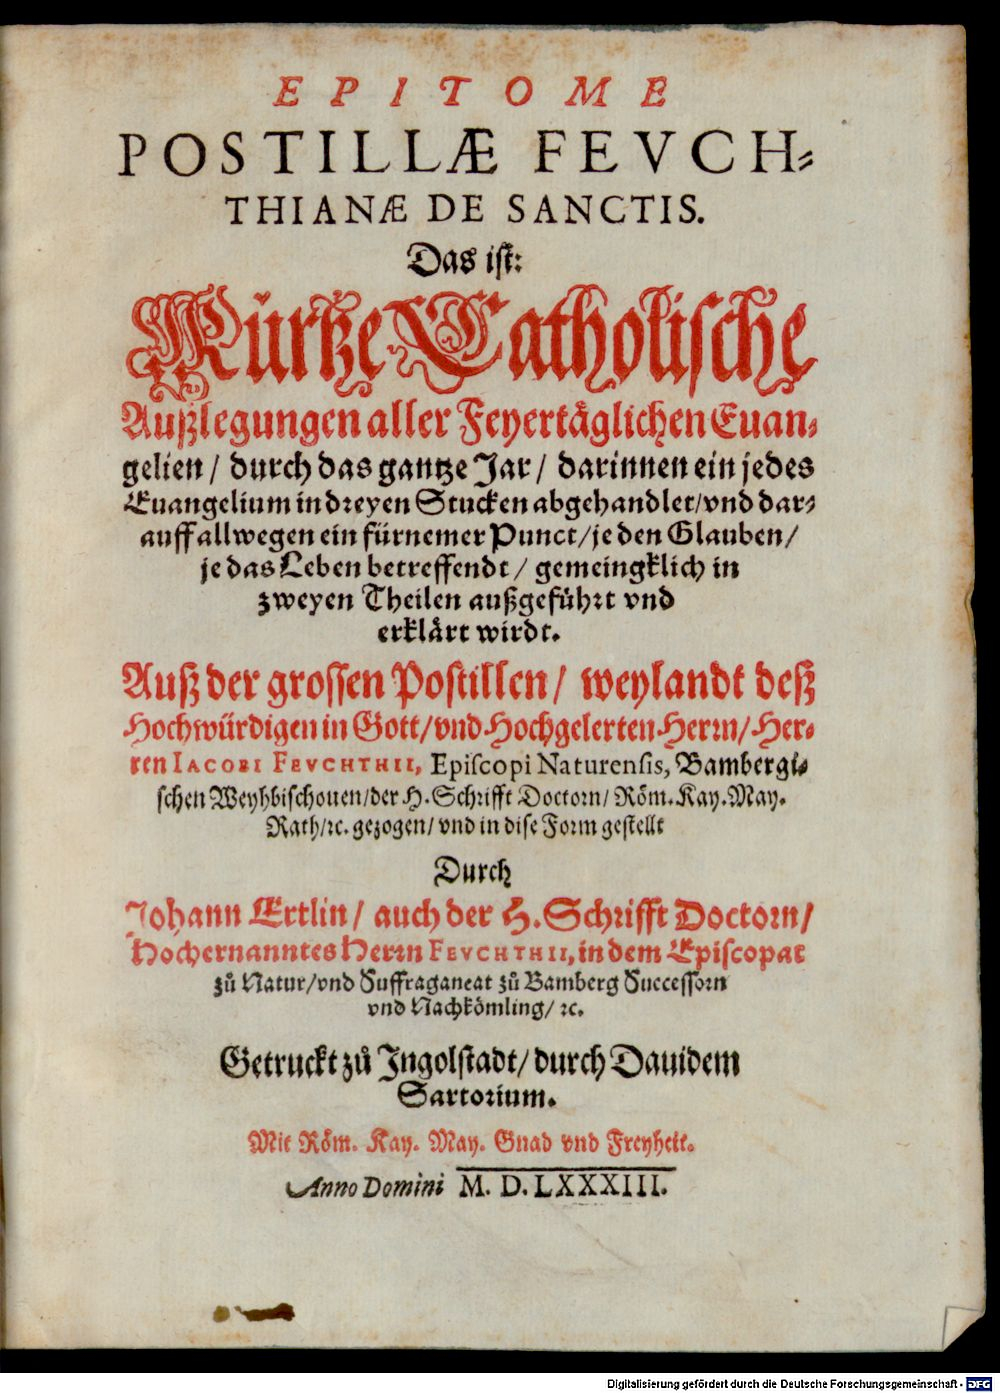 EPITOME
POSTILLÆ FEVCH⸗
THIANÆ DE SANCTIS.
Das ist:
Kürtze Catholische
Außlegungen aller Feyertäglichen Euan⸗
gelien / durch das gantze Jar / darinnen ein jedes
Euangelium in dreyen Stucken abgehandlet/vnd dar⸗
auff allwegen ein fürnemer Punct/je den Glauben/
je das Leben betreffendt / gemeingklich in
zweyen Theilen außgeführt vnd
erklärt wirdt.
Auß der grossen Postillen / weylandt deß
Hochwürdigen in Gott/vnd Hochgelerten Herrn/Her⸗
ren IACOBI FEVCHTHII, Episcopi Naturensis, Bambergi⸗
schen Weyhbischouen/der H. Schrifft Doctorn/ Röm. Kay. May.
Rath/ꝛc. gezogen/vnd in dise Form gestellt
Durch
Johann Ertlin/ auch der H. Schrifft Doctorn/
Hochernanntes Herrn FEVCHTHII, in dem Episcopat
zů Natur/vnd Suffraganeat zů Bamberg Successorn
vnd Nachkömling/ ꝛc.
Getruckt zů Ingolstadt/durch Dauidem
Sartorium.
Mit Röm. Kay. May. Gnad vnd Freyheit.
Anno Domini M. D. LXXXIII.
Digitalisierung gefördert durch die Deutsche Forschungsgemeinschaft - DFG